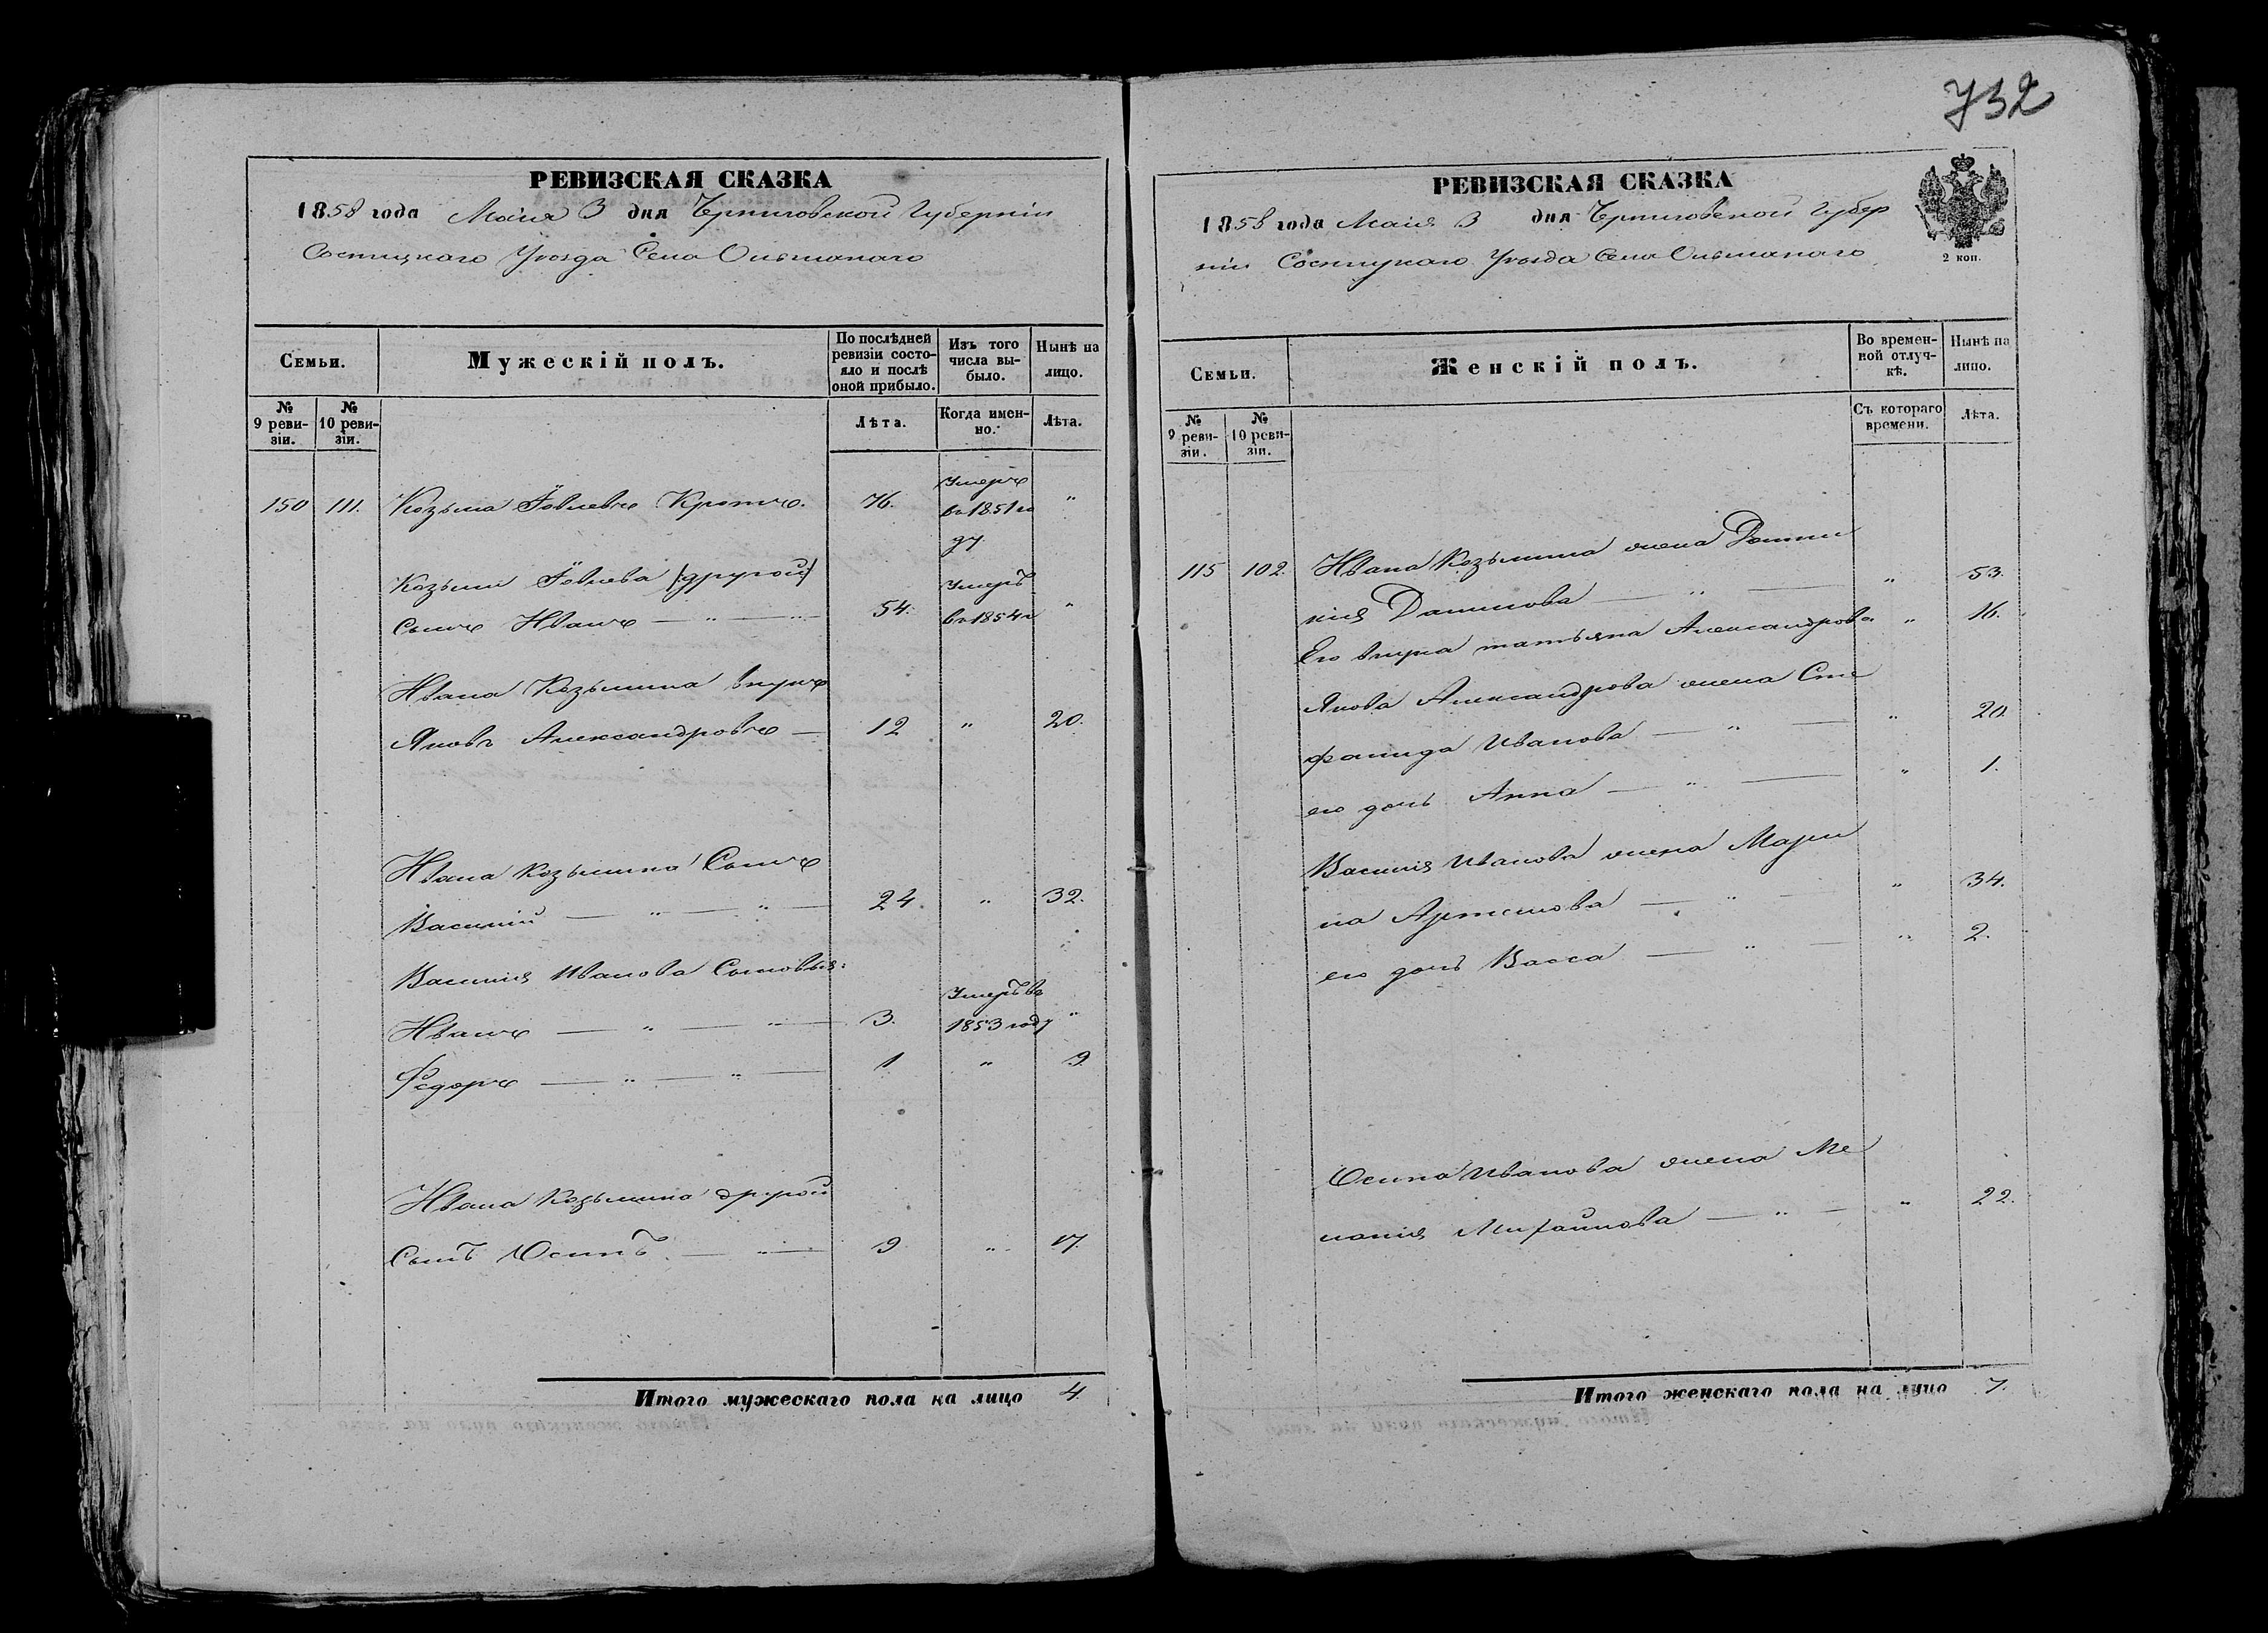 732
РЕВИЗСКАЯ СКАЗКА
1858 года Маія 3 дня Черниговской Губерніи
Сосницкаго Уѣзда Села Ольшанаго
Семьи.
Мужескій полъ.
По послѣдней ревизіи состояло и послѣ оной прибыло.
Изъ того числа выбыло.
Нынѣ на лицо.
№ 9 ревизіи.
№ 10 ревизіи.
Лѣта.
Когда именно.
Лѣта.
150 111. Козьма Іовлевъ Кротъ. 76. Умеръ въ 1851 году "
Козьмы Іовлева (другой)
Сынъ Иванъ — " — " 54. Умеръ въ 1854 г "
Ивана Козьмина внукъ
Яковъ Александровъ — 12 " 20.
Ивана Козьмина Сынъ
Василій — " — " — 24. " 32.
Василія Иванова Сыновья:
Иванъ — " — " — 3. Умеръ въ 1853 году "
Федоръ — " — " — 1 " 9.
Ивана Козьмина другой
Сынъ Осипъ — " — 9 " 17.
Итого мужескаго пола на лицо 4.
РЕВИЗСКАЯ СКАЗКА
1858 года Маія 3 дня Черниговской Губер
ніи Сосницкаго Уѣзда Села Ольшанаго
2 коп.
Семьи.
Женскій полъ.
Во временной отлучкѣ.
Нынѣ на лицо.
№ 9 ревизіи.
№ 10 ревизіи.
Съ котораго времени.
Лѣта.
115 102. Ивана Козьмина жена Домни
кія Данилова — " — " 53.
Его внука татьяна Александрова " 16.
Якова Александрова жена Сте
фанида Иванова — " — " 20.
его дочь Анна — " — " 1.
Василія Иванова жена Мари
на Артемова — " — " 34.
его дочь Васса — " — " 2.
Осипа Иванова жена Ме
ланія Михайлова — " — " 22.
Итого женскаго пола на лицо 7.